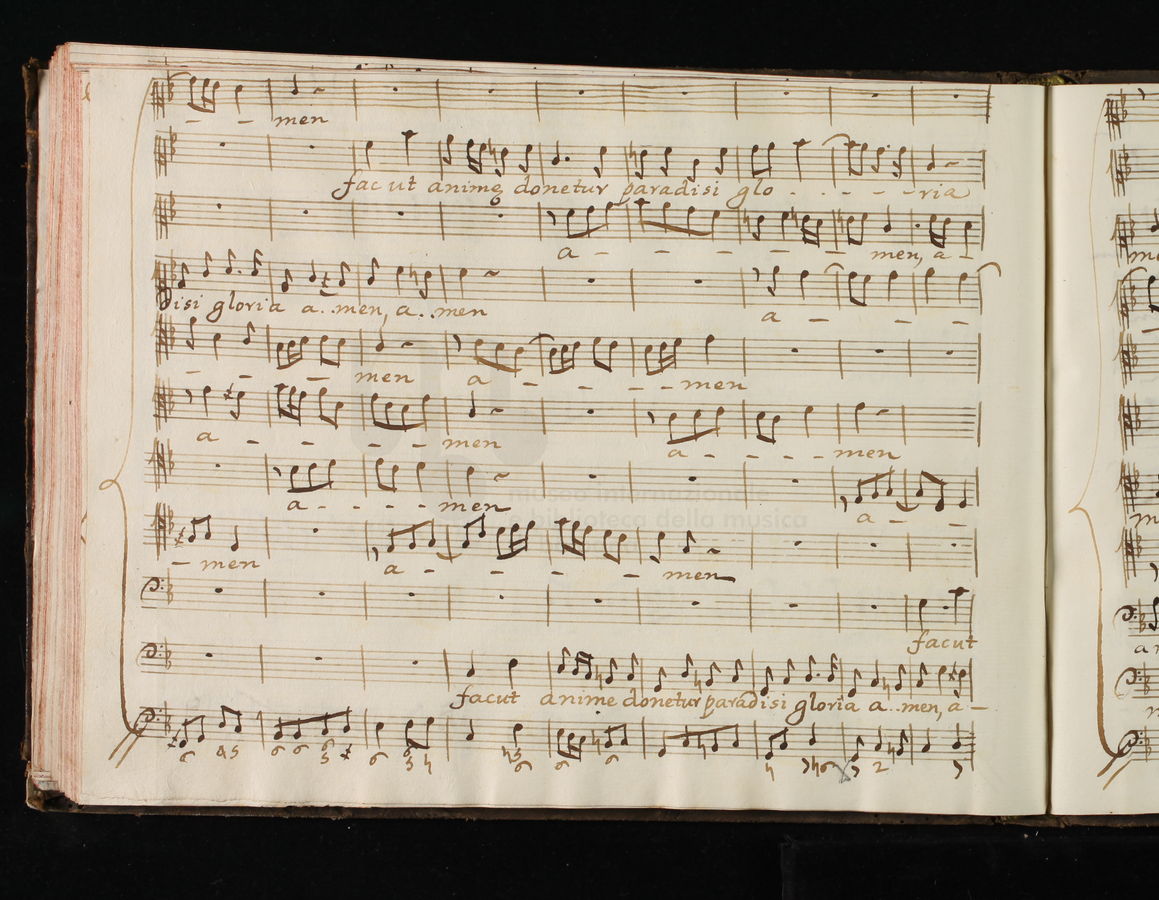 - - men
fac ut anime donetur paradisi glo - - - - ria
a - - - - - men, a -
disi gloria a..men, a..men
a - - -
- - - men a - - - - men
a - - - - men a - - - - men
a - - - men a - -
- men a - - - - men
fac ut
fac ut anime donetur paradisi gloria a..men, a -
6 4 5 6 6 5 # 6 5 4 5 6 6 6
museo internazionale
e biblioteca della musica